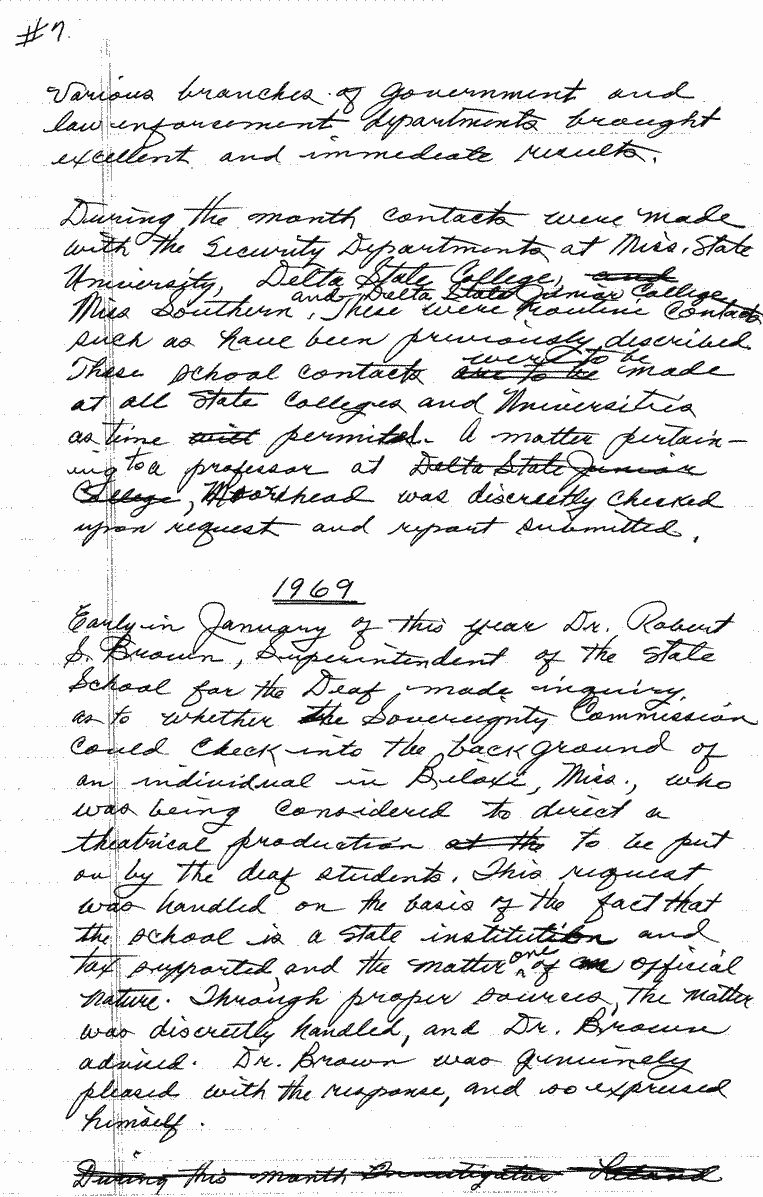 #7.
Various branches of government and
law enforcement departments brought
excellent and immediate results.
During the month contacts were made
with the Security Departments at Miss. State
University, Delta State College, and
and Delta State Junior College
Miss Southern, These were routine contacts
such as have been previously described.
were to be
These school contacts are to be made
at all State Colleges and Universities
as time will permitted. A matter pertain-
ing to a professor at Delta State Junior
College, Moorehead was discreetly checked
upon request and report submitted.
1969
Early in January of this year Dr. Robert
S. Brown, Superintendent of the State
School for the Deaf, made inquiry
as to whether the Sovereignty Commission
could check into the background of
an individual in Biloxi, Miss., who
was being considered to direct a
theatrical production at the to be put
on by the deaf students. This request
was handled on the basis of the fact that
the school is a state institution and
tax supported and the matter one of an official
nature. Through proper sources, the matter
was discreetly handled, and Dr. Brown
advised. Dr. Brown was genuinely
pleased with the response, and so expressed
himself.
During this month Investigator